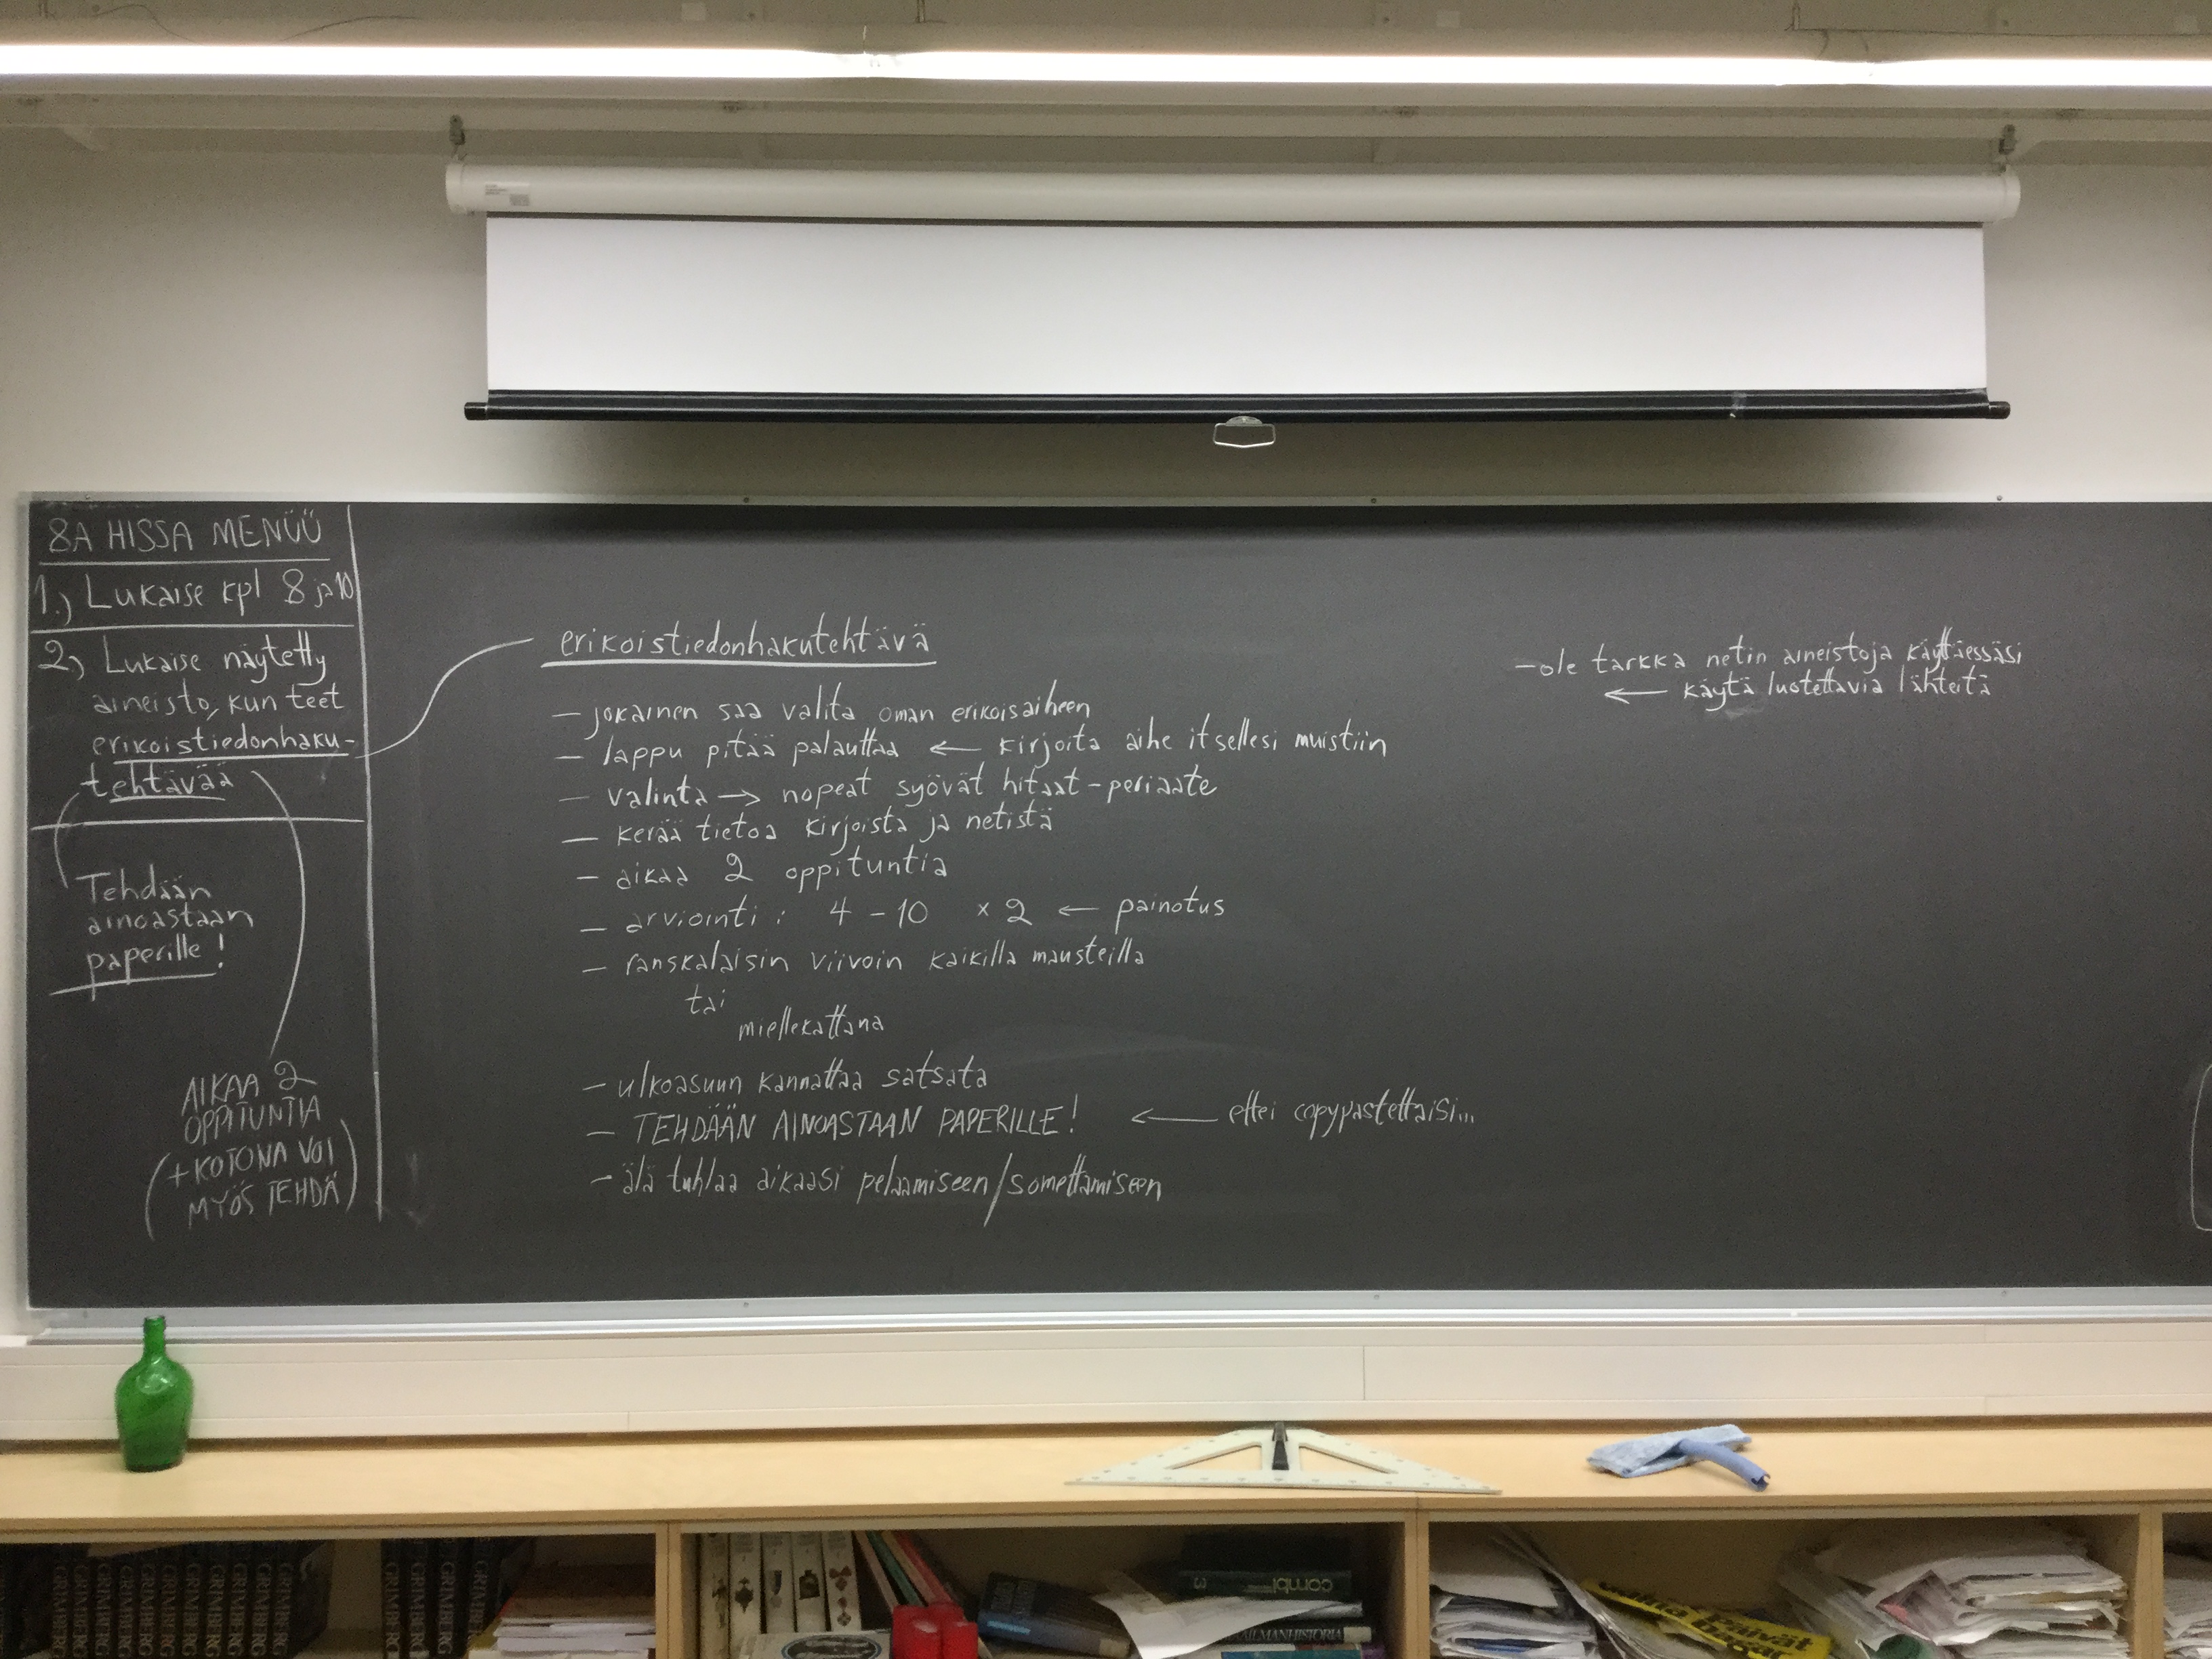 8A HISSA MENÜÜ
1.) Lukaise kpl 8 ja 10
2) Lukaise näytetty
aineisto, kun teet
erikoistiedonhaku-
tehtävää
Tehdään
ainoastaan
paperille!
AIKAA 2
OPPITUNTIA
(+ KOTONA VOI
MYÖS TEHDÄ)
erikoistiedonhakutehtävä
– jokainen saa valita oman erikoisaiheen
– lappu pitää palauttaa ← kirjoita aihe itsellesi muistiin
– valinta → nopeat syövät hitaat-periaate
– kerää tietoa kirjoista ja netistä
– aikaa 2 oppituntia
– arviointi: 4 – 10 × 2 ← painotus
– ranskalaisin viivoin kaikilla mausteilla
tai
miellekattana
– ulkoasuun kannattaa satsata
– TEHDÄÄN AINOASTAAN PAPERILLE! ← ettei copypastettaisi...
– älä tuhlaa aikaasi pelaamiseen/somettamiseen
– ole tarkka netin aineistoja käyttäessäsi
← käytä luotettavia lähteitä
GRIMBERG GRIMBERG GRIMBERG GRIMBERG GRIMBERG GRIMBERG GRIMBERG GRIMBERG GRIMBERG GRIMBERG GRIMBERG
combi 3